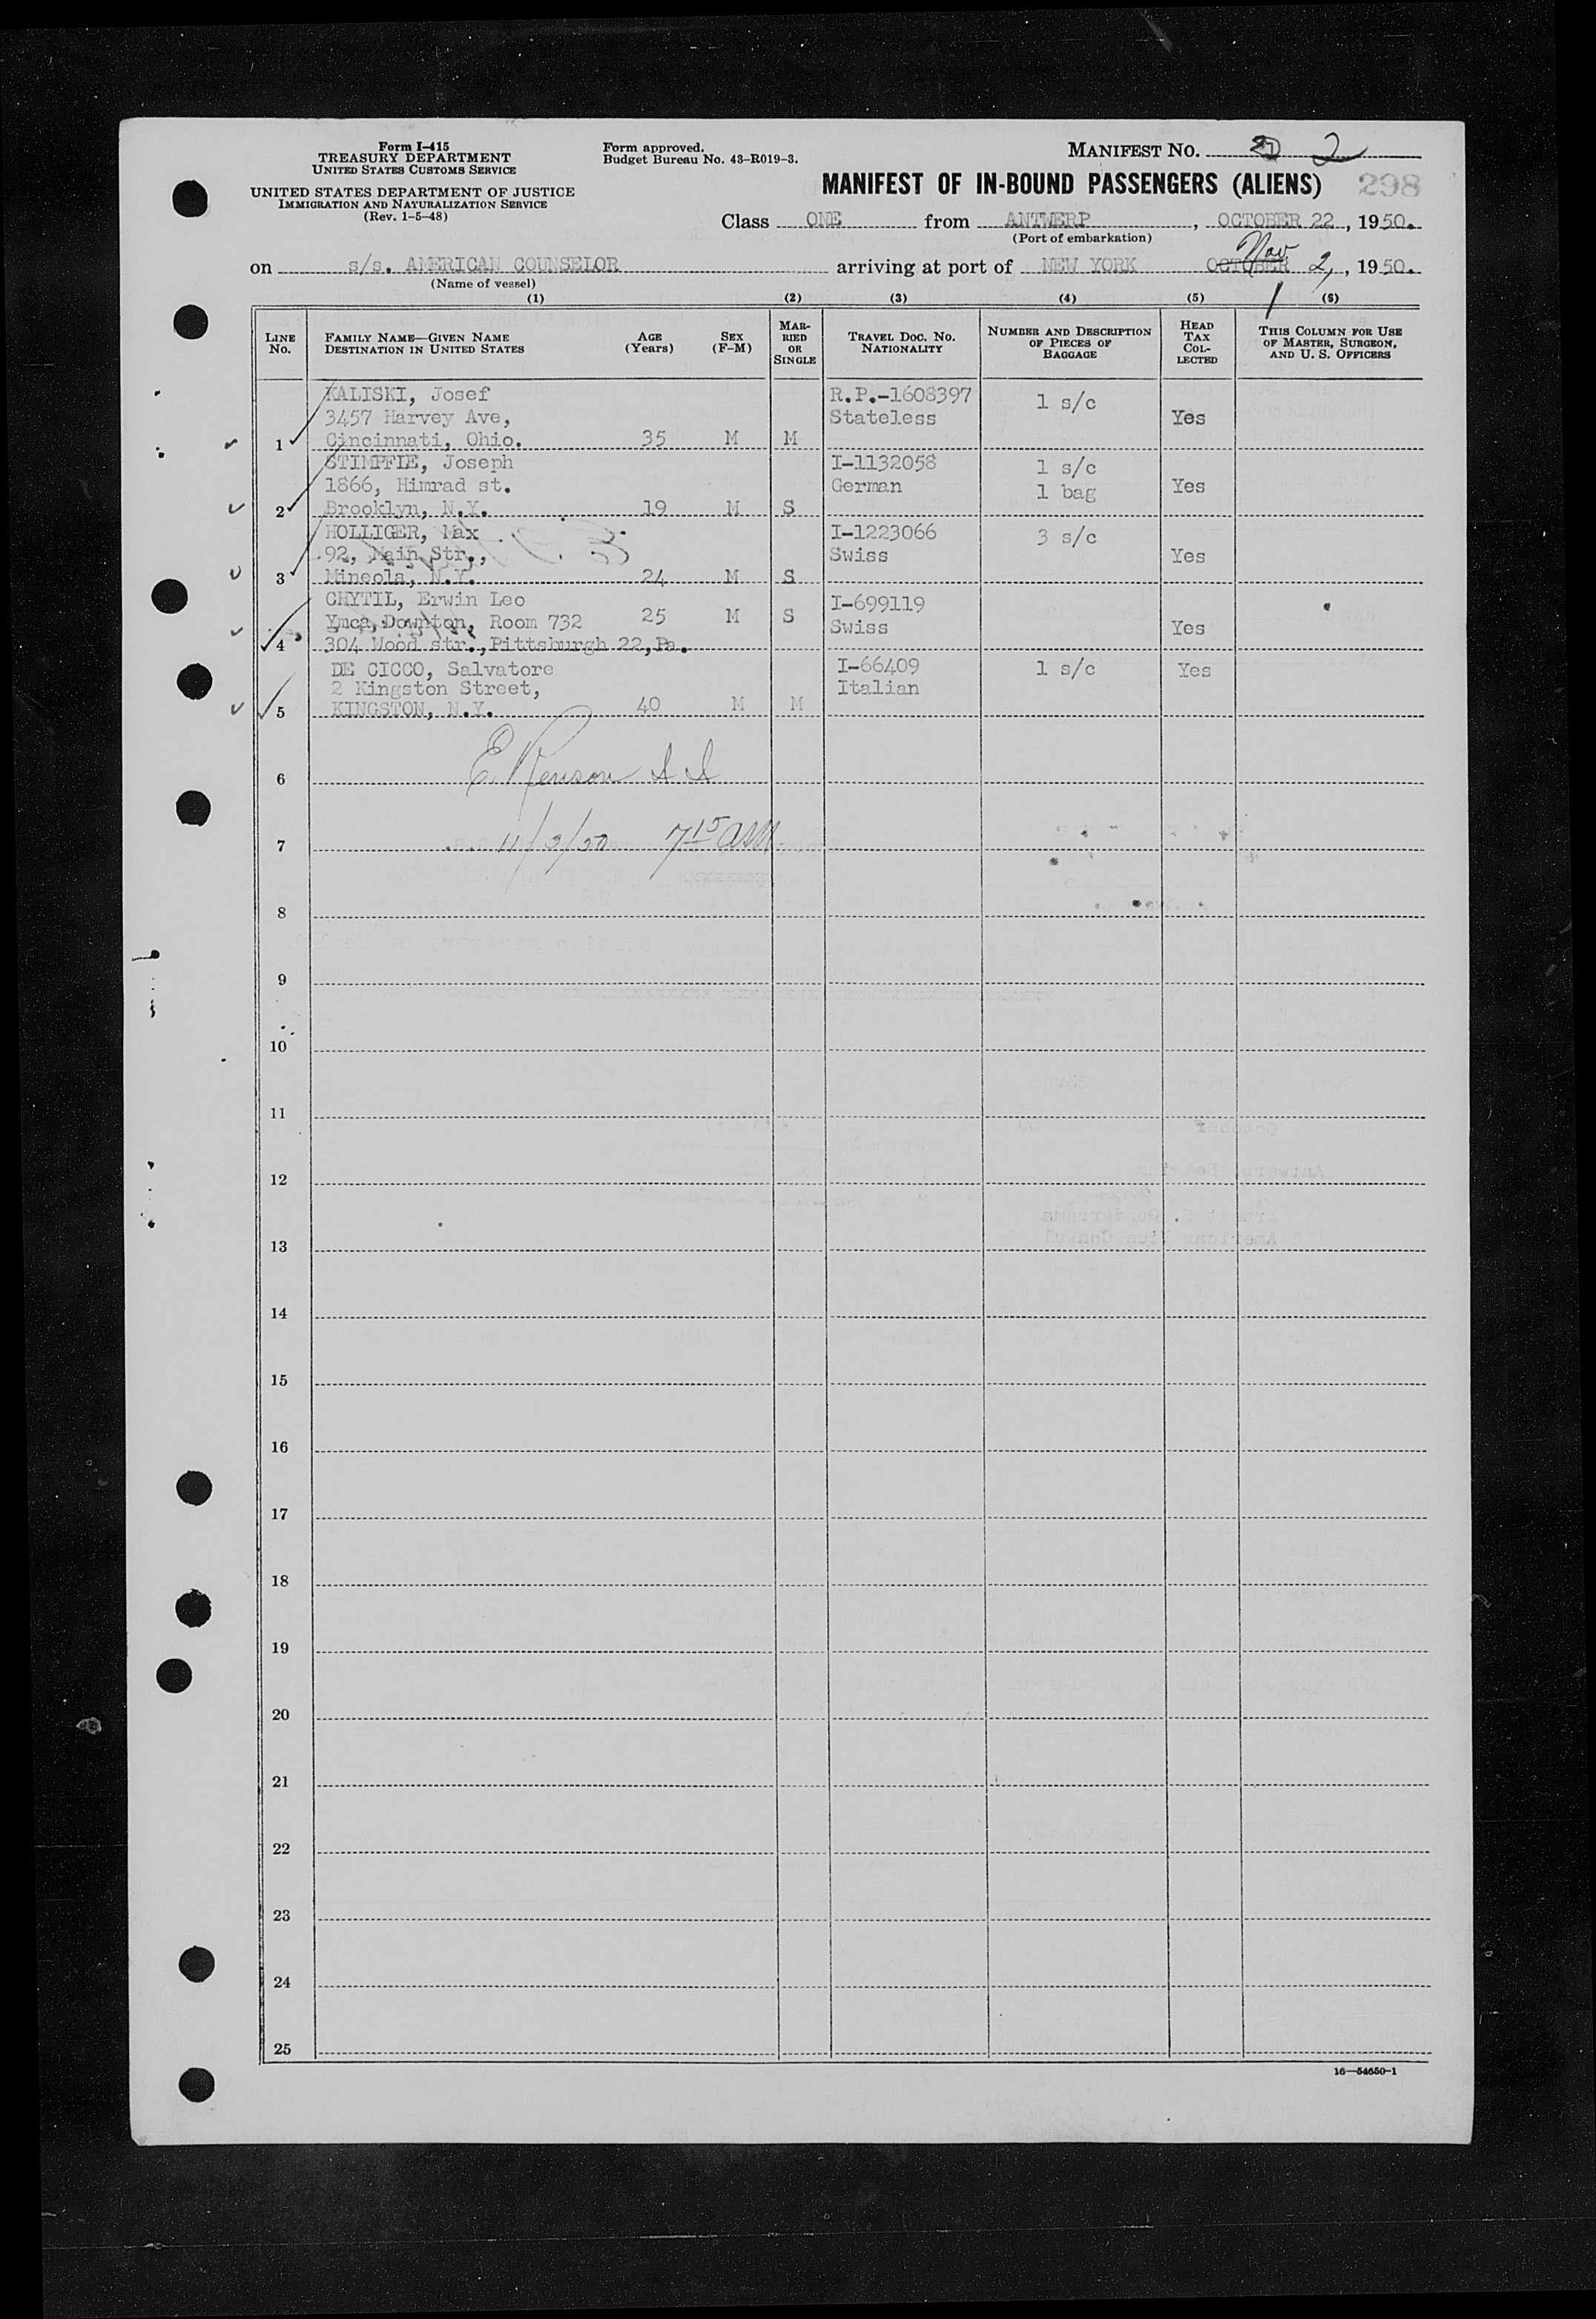 Form I-415
TREASURY DEPARTMENT
UNITED STATES CUSTOMS SERVICE
UNITED STATES DEPARTMENT OF JUSTICE
IMMIGRATION AND NATURALIZATION SERVICE
(Rev. 1-5-48)
Form approved.
Budget Bureau No. 43-R019-3.
MANIFEST NO. 2
MANIFEST OF IN-BOUND PASSENGERS (ALIENS) 298
Class ONE from ANTWERP, OCTOBER 22, 1950.
(Port of embarkation)
Nov
on s/s. AMERICAN COUNSELOR arriving at port of NEW YORK OCTOBER 2, 1950.
(Name of vessel)
(1) (2) (3) (4) (5) (6)
LINE No. FAMILY NAME—GIVEN NAME DESTINATION IN UNITED STATES AGE (Years) SEX (F-M) MARRIED OR SINGLE TRAVEL DOC. NO. NATIONALITY NUMBER AND DESCRIPTION OF PIECES OF BAGGAGE HEAD TAX COLLECTED THIS COLUMN FOR USE OF MASTER, SURGEON, AND U. S. OFFICERS
KALISKI, Josef R.P.-1608397 1 s/c
3457 Harvey Ave, Stateless Yes
1 Cincinnati, Ohio. 35 M M
STIMPFIE, Joseph I-1132058 1 s/c
1866, Himrad st. German 1 bag Yes
2 Brooklyn, N.Y. 19 M S
HOLLIGER, Max I-1223066 3 s/c
92, Main Str., Swiss Yes
3 Mineola, N.Y. 24 M S
CHYTIL, Erwin Leo I-699119
Ymca, Downton, Room 732 25 M S Swiss Yes
4 304 Wood str., Pittsburgh 22, Pa.
DE CICCO, Salvatore I-66409 1 s/c Yes
2 Kingston Street, Italian
5 KINGSTON, N.Y. 40 M M
6
7 11/2/50 7 15 AM
8
9
10
11
12
13
14
15
16
17
18
19
20
21
22
23
24
25
16—54650-1